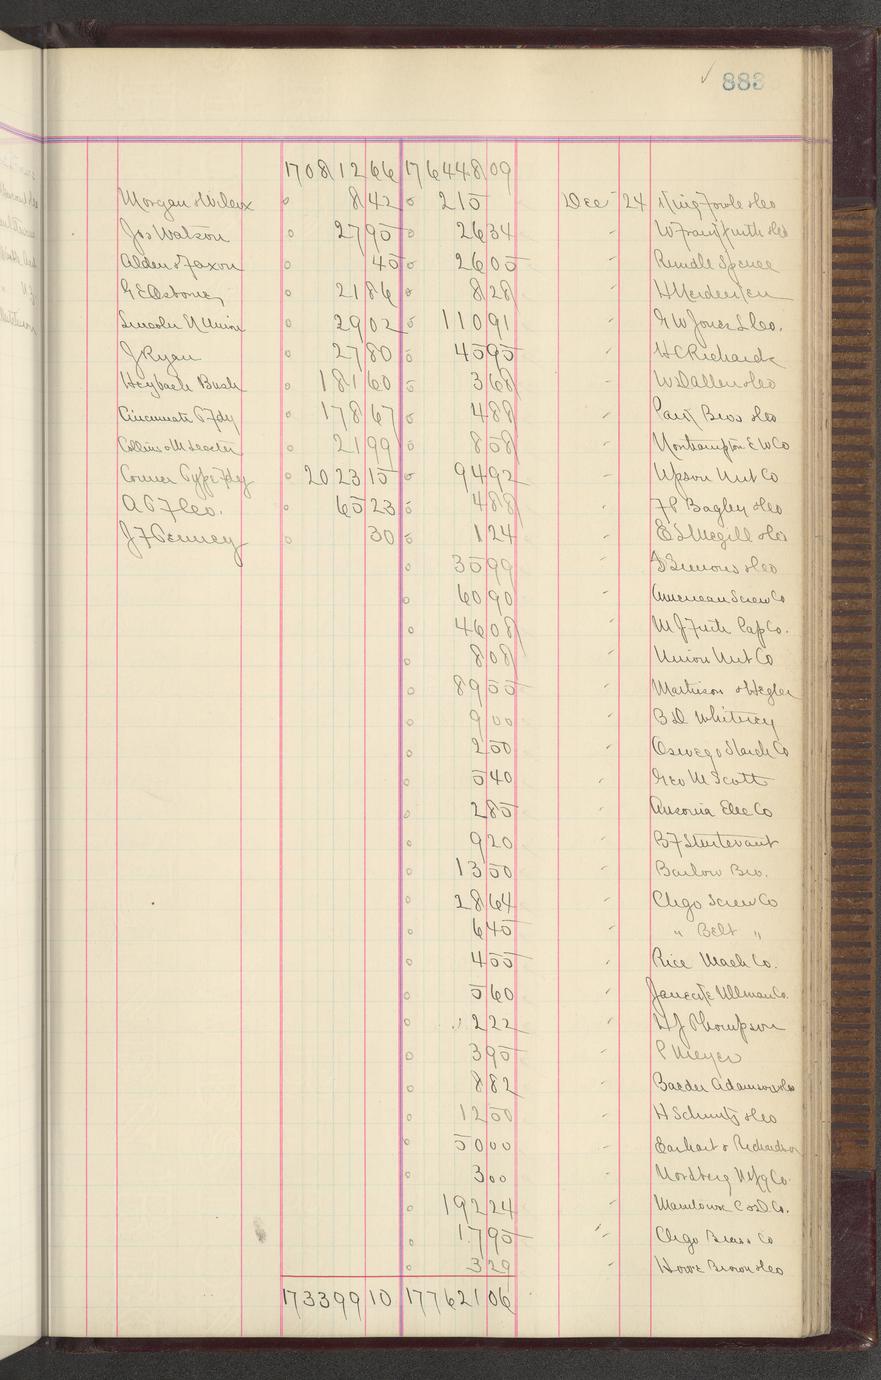 ✓ 883
170812 66 176448 09
Morgan & Wilcox o 8 42 o 215 Dec 24 King Fowle & Co
Jos Watson o 27 95 o 26 34 "
Alden & Faxon o 45 o 26 05 " Rundle Spence
G E Osborne o 21 86 o 8 28 "
Lincoln N Union o 29 02 o 110 91 " G W Jones L Co.
J Ryan o 27 80 o 45 95 " H C Richards
Heybach Bush o 181 60 o 3 68 " W D Allen & Co
Cincinnati T Fdy o 178 67 o 4 88 " Bros & Co
Collins & M Leester o 21 99 o 8 58 " Northampton E W Co
Conner Type Fdy o 2023 15 o 94 92 " Upson Nut Co
A T F Co. o 65 23 o 4 88 " F P Bagley & Co
J F Penney o 30 o 1 24 " E S Megill & Co
o 35 99 " Simons & Co
o 60 90 " American Screw Co
o 46 08 " M J Frith Cap Co.
o 8 08 " Union Nut Co
o 89 55 " Mathison & Hegler
o 9 00 " B D Whitney
o 2 50 " Oswego Starch Co
o 5 40 " Geo M Scott
o 2 85 " Ansonia Elec Co
o 9 20 " B F Sturtevant
o 13 50 " Barlow Bro.
o 28 64 " Chgo Screw Co
o 6 45 " " Belt "
o 4 55 " Rice Mach Co.
o 5 60 " Jaenecke Ullman Co.
o 2 22 " H J Thompson
o 3 95 " P Meyer
o 8 82 " Baeder Adamson & Co
o 12 50 " H Schmitz & Co
o 50 00 " Earhart & Richardson
o 3 00 " Nordberg Mfg Co
o 192 24 " C & D Co.
o 17 95 " Chgo Brass Co
o 3 29 Howe Brown & Co
173399 10 177621 06